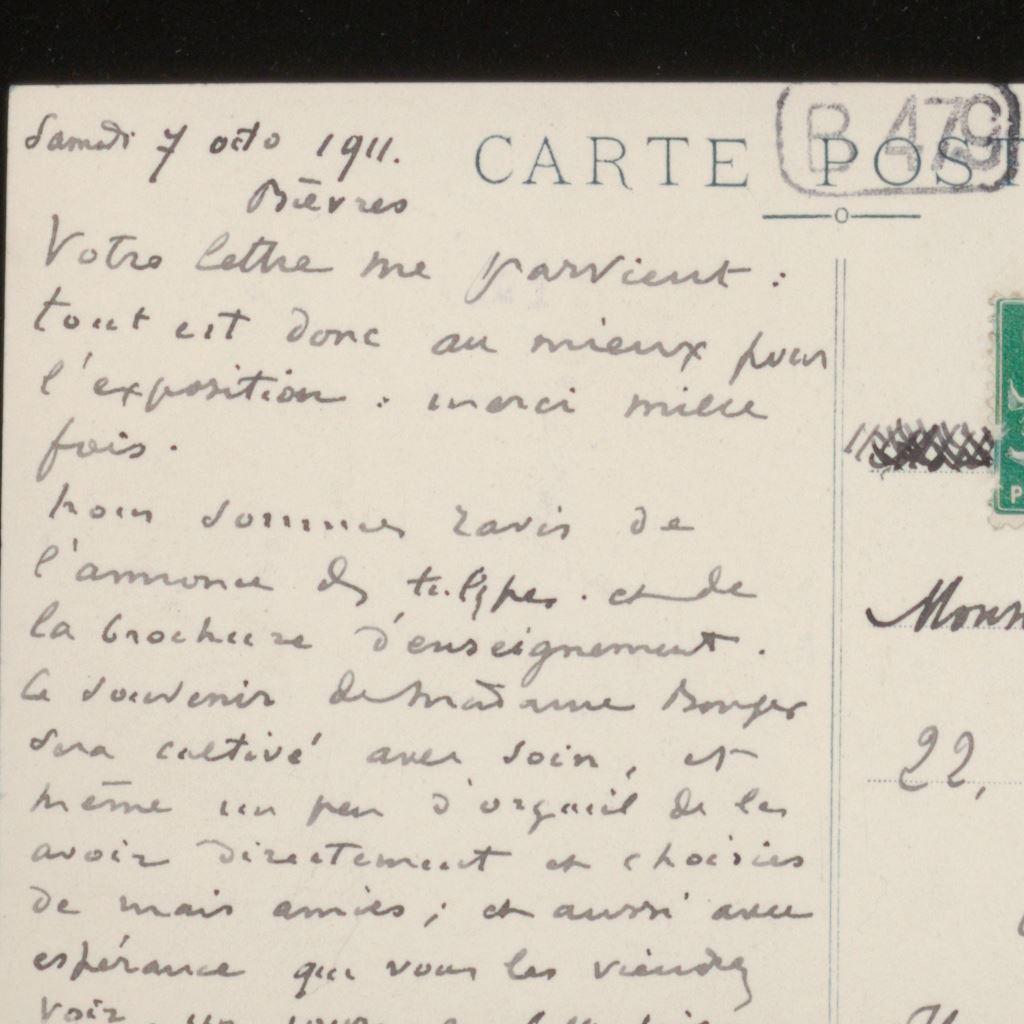 Samedi 7 octo 1911.
Bièvres
CARTE POST
B 479
Votre lettre me parvient :
tout est donc au mieux pour
l'exposition : merci mille
fois.
nous sommes ravis de
l'annonce des tulipes. et de
la brochure d'enseignement.
Ce souvenir de Madame Bonger
sera cultivé avec soin, et
même un peu d'orgueil de les
avoir directement et choisies
de mais amies ; et aussi avec
espérance que vous les viendrez
voir un jour
Mons
22,